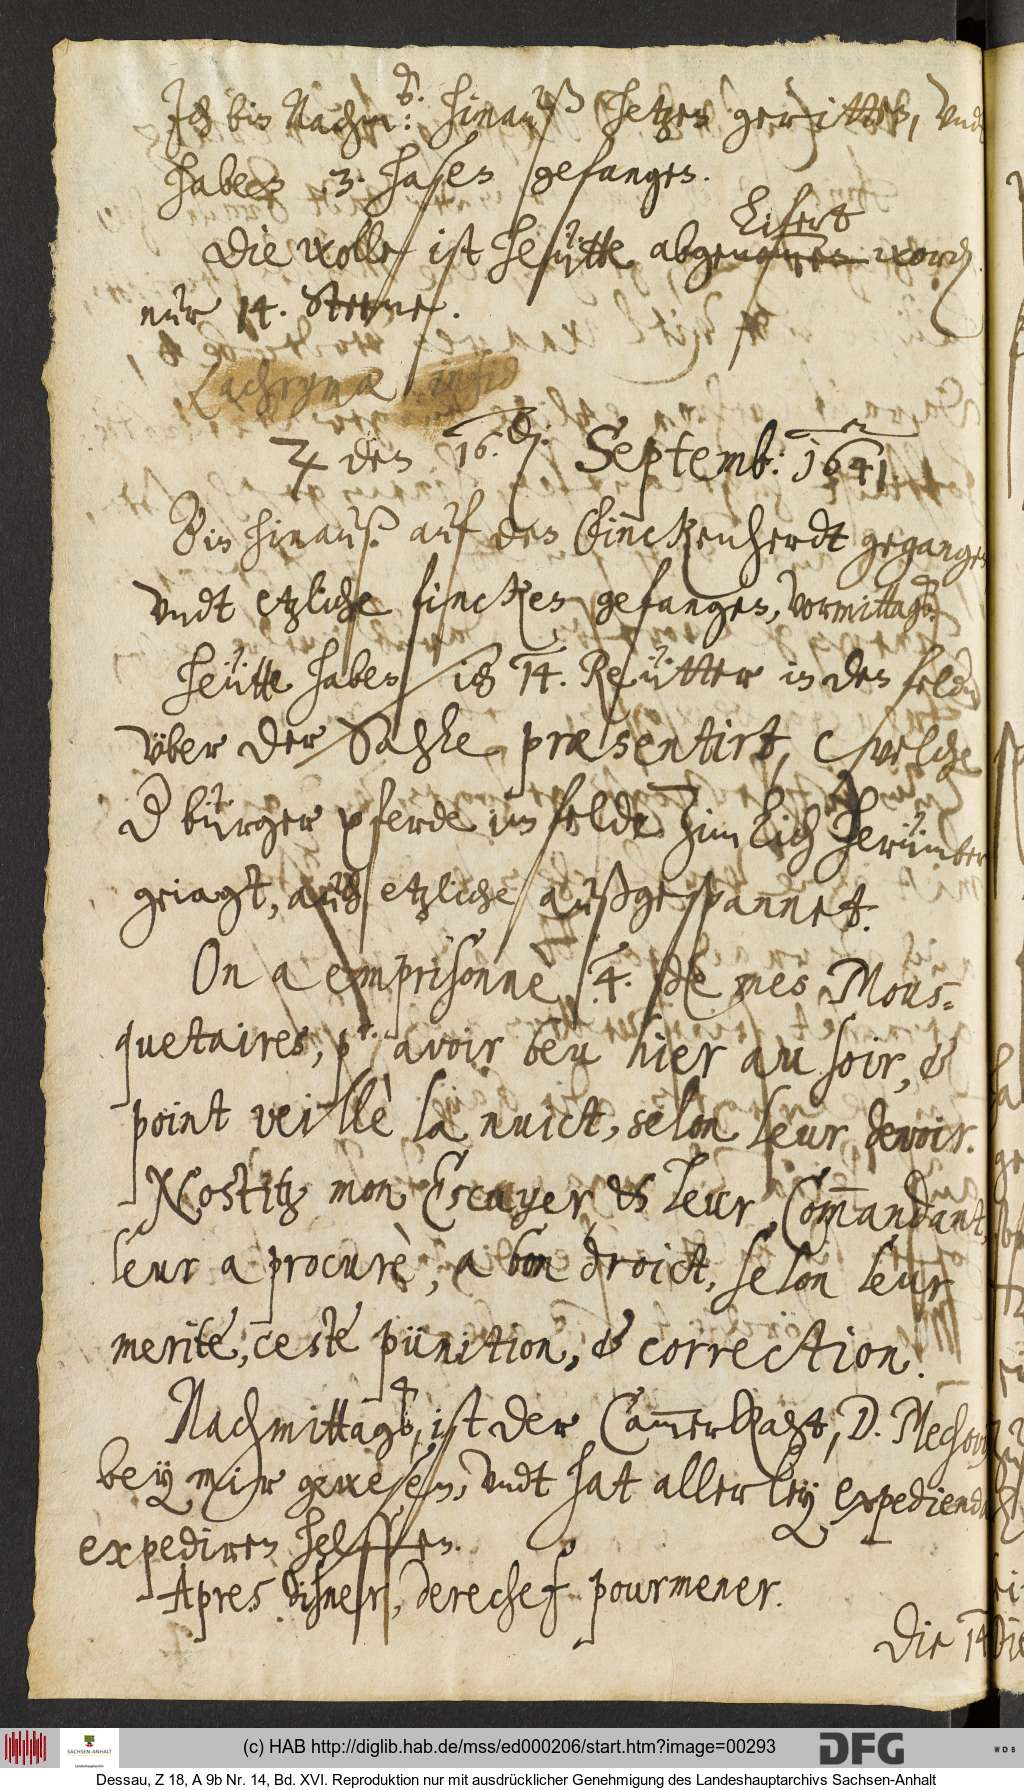 Ich bin Nachm: hinauß hetzen geritten, vndt
haben 3. hasen gefangen.
Die wolle ist heütte abgenommen worden
nur 14. Steine.
Lachrymæ
♃ den 16. Septemb: 1641
Bin hinauß auf den Finckenherdt gegangen
vndt etzliche fincken gefangen, vormittags
heütte haben sich 14. Reütter in den feldern
vber der Sahle præsentirt, welche
d bürger pferde im felde zimlich herümber
geiagt, auch etzliche außgespannet.
On a emprisonnè 4. de mes Mous=
quetaires, pr. avoir beu hier au soir, &
point veillè la nuict, selon leur devoir.
Nostitz mon Escuyer, & leur Com̄andant,
leur a procurè, a bon droict, selon leur
merite, ceste pünition, & correction.
Nachmittags, ist der Cam̄erRaht, D. Mechovius
bey mir gewesen, vndt hat allerley expedienda
expediren helffen.
Apres disner, derechef pourmener.
Die 14
(c) HAB http://diglib.hab.de/mss/ed000206/start.htm?image=00293
SACHSEN-ANHALT
DFG
WDB
Dessau, Z 18, A 9b Nr. 14, Bd. XVI. Reproduktion nur mit ausdrücklicher Genehmigung des Landeshauptarchivs Sachsen-Anhalt